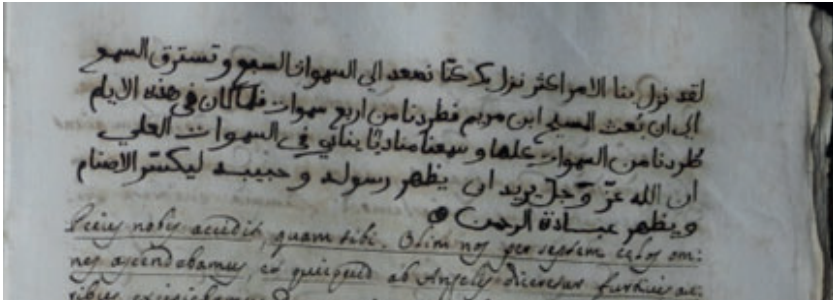 لقد نزل بنا الامر اكثر نزل بك كنّا نصعد الى السموات السبع و تسترق السمع
الى ان بُعث المسيح ابن مريم فطردنا من اربع سموات فلما كان فى هذه الايام
طُردنا من السموات علها و سمعنا مناديًا ينادي فى السموات العلي
ان الله عزّ وّجلّ يريد ان يظهر رسوله و حبيبه ليكسّر الاصنام
و يظهر عبادة الرحمن
Peius nobis accidit, quam tibi. Olim nos per septem cęlos om:
nes ascendebamus, et quicquid ab Angelis diceretur furtiuis au:
ribus